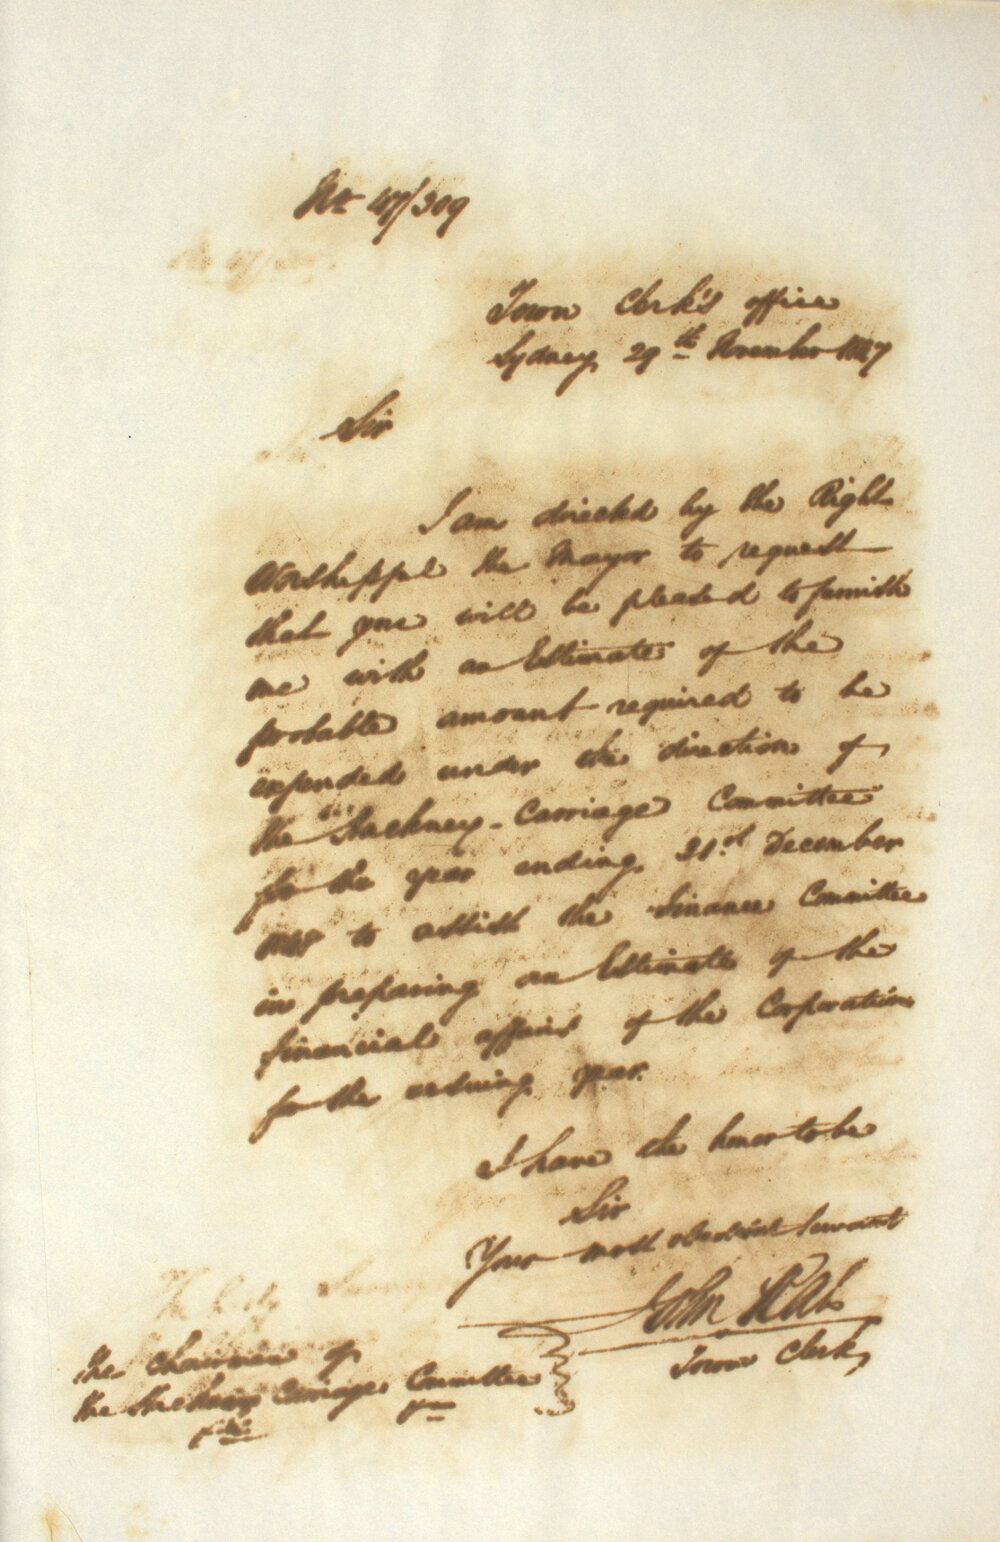 No 47/309
Town Clerk's office
Sydney 29th November 1847
Sir
I am directed by the Right
Worshipful the Mayor to request
that you will be pleased to furnish
me with an Estimate of the
probable amount required to be
expended under the direction of
the "Hackney-Carriage Committee"
for the year ending 31st December
1848 to assist the Finance Committee
in preparing an Estimate of the
financial affairs of the Corporation
for the ensuing year.
I have the honor to be
Sir
Your most obedient Servant
John
Town Clerk
The Chairman of
the Hackney Carriage Committee